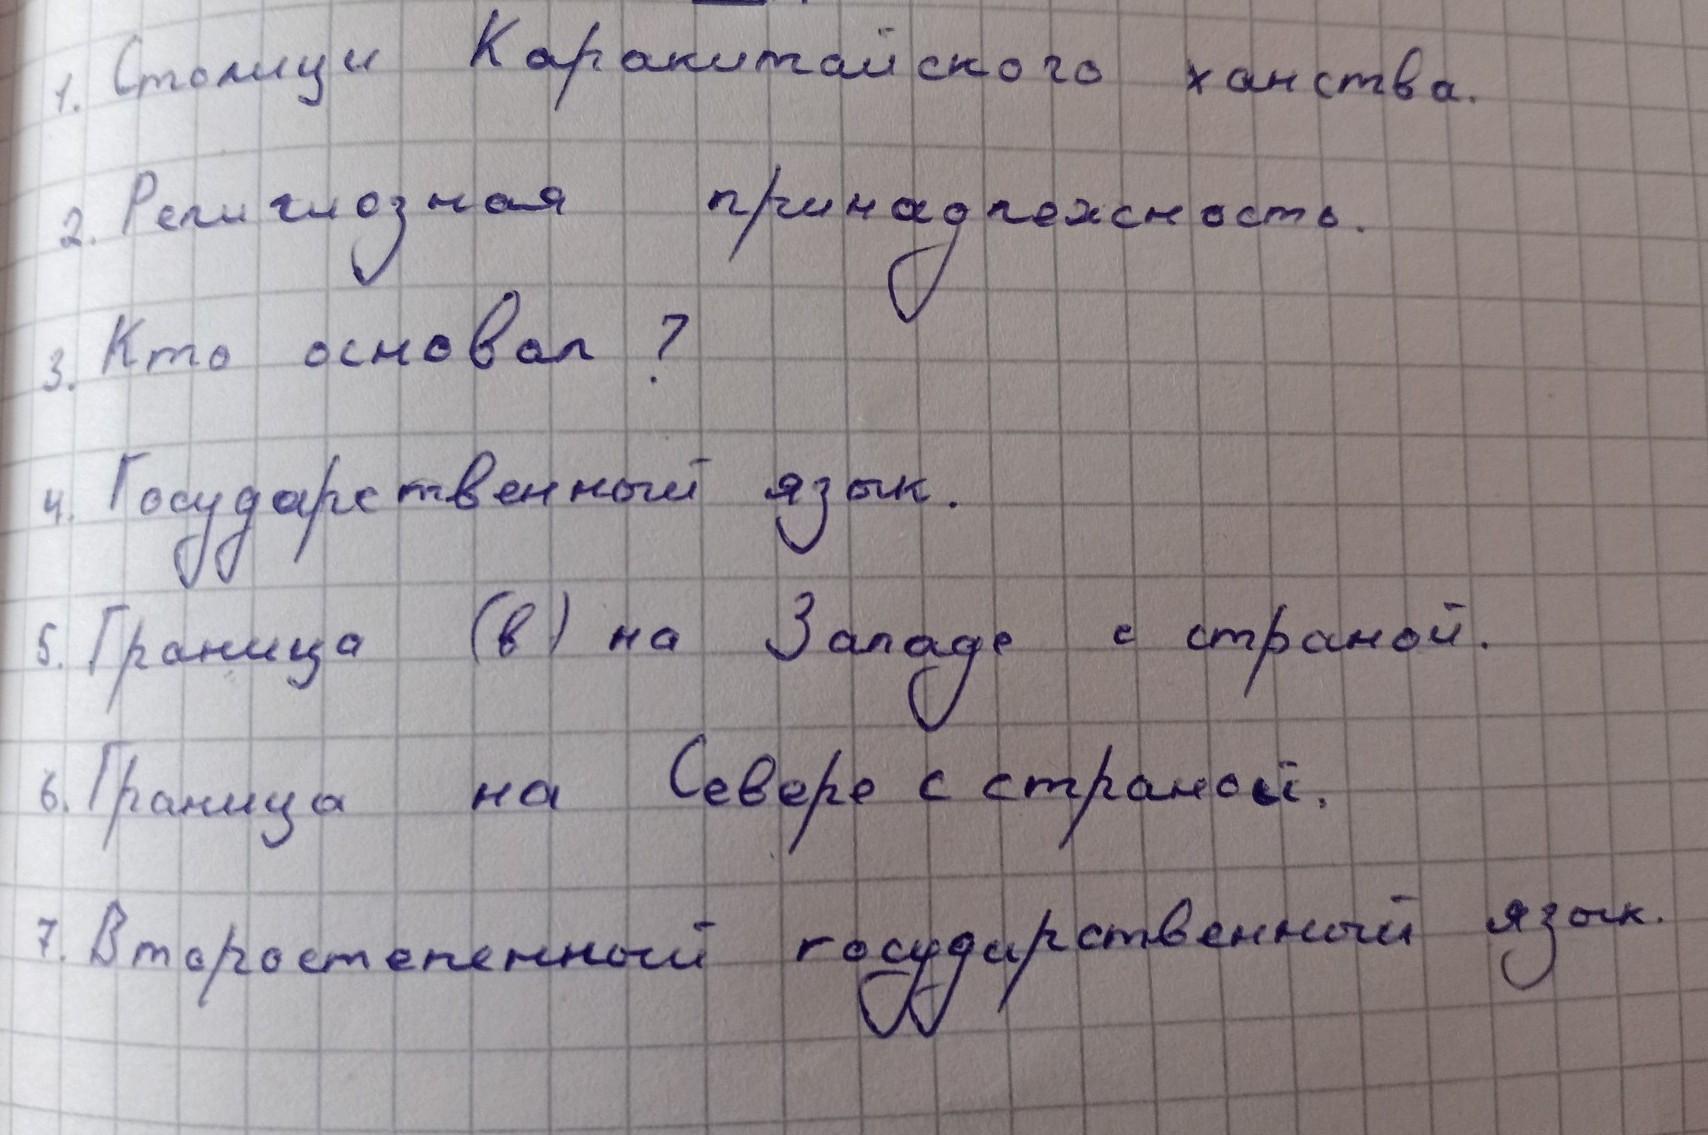 1. Столицы Каракитайского ханства.
2. Религиозная принадлежность.
3. Кто основал ?
4. Государственный язык.
5. Граница (в) на Западе с страной.
6. Граница на Севере с страной.
7. Второстепенный государственный язык.